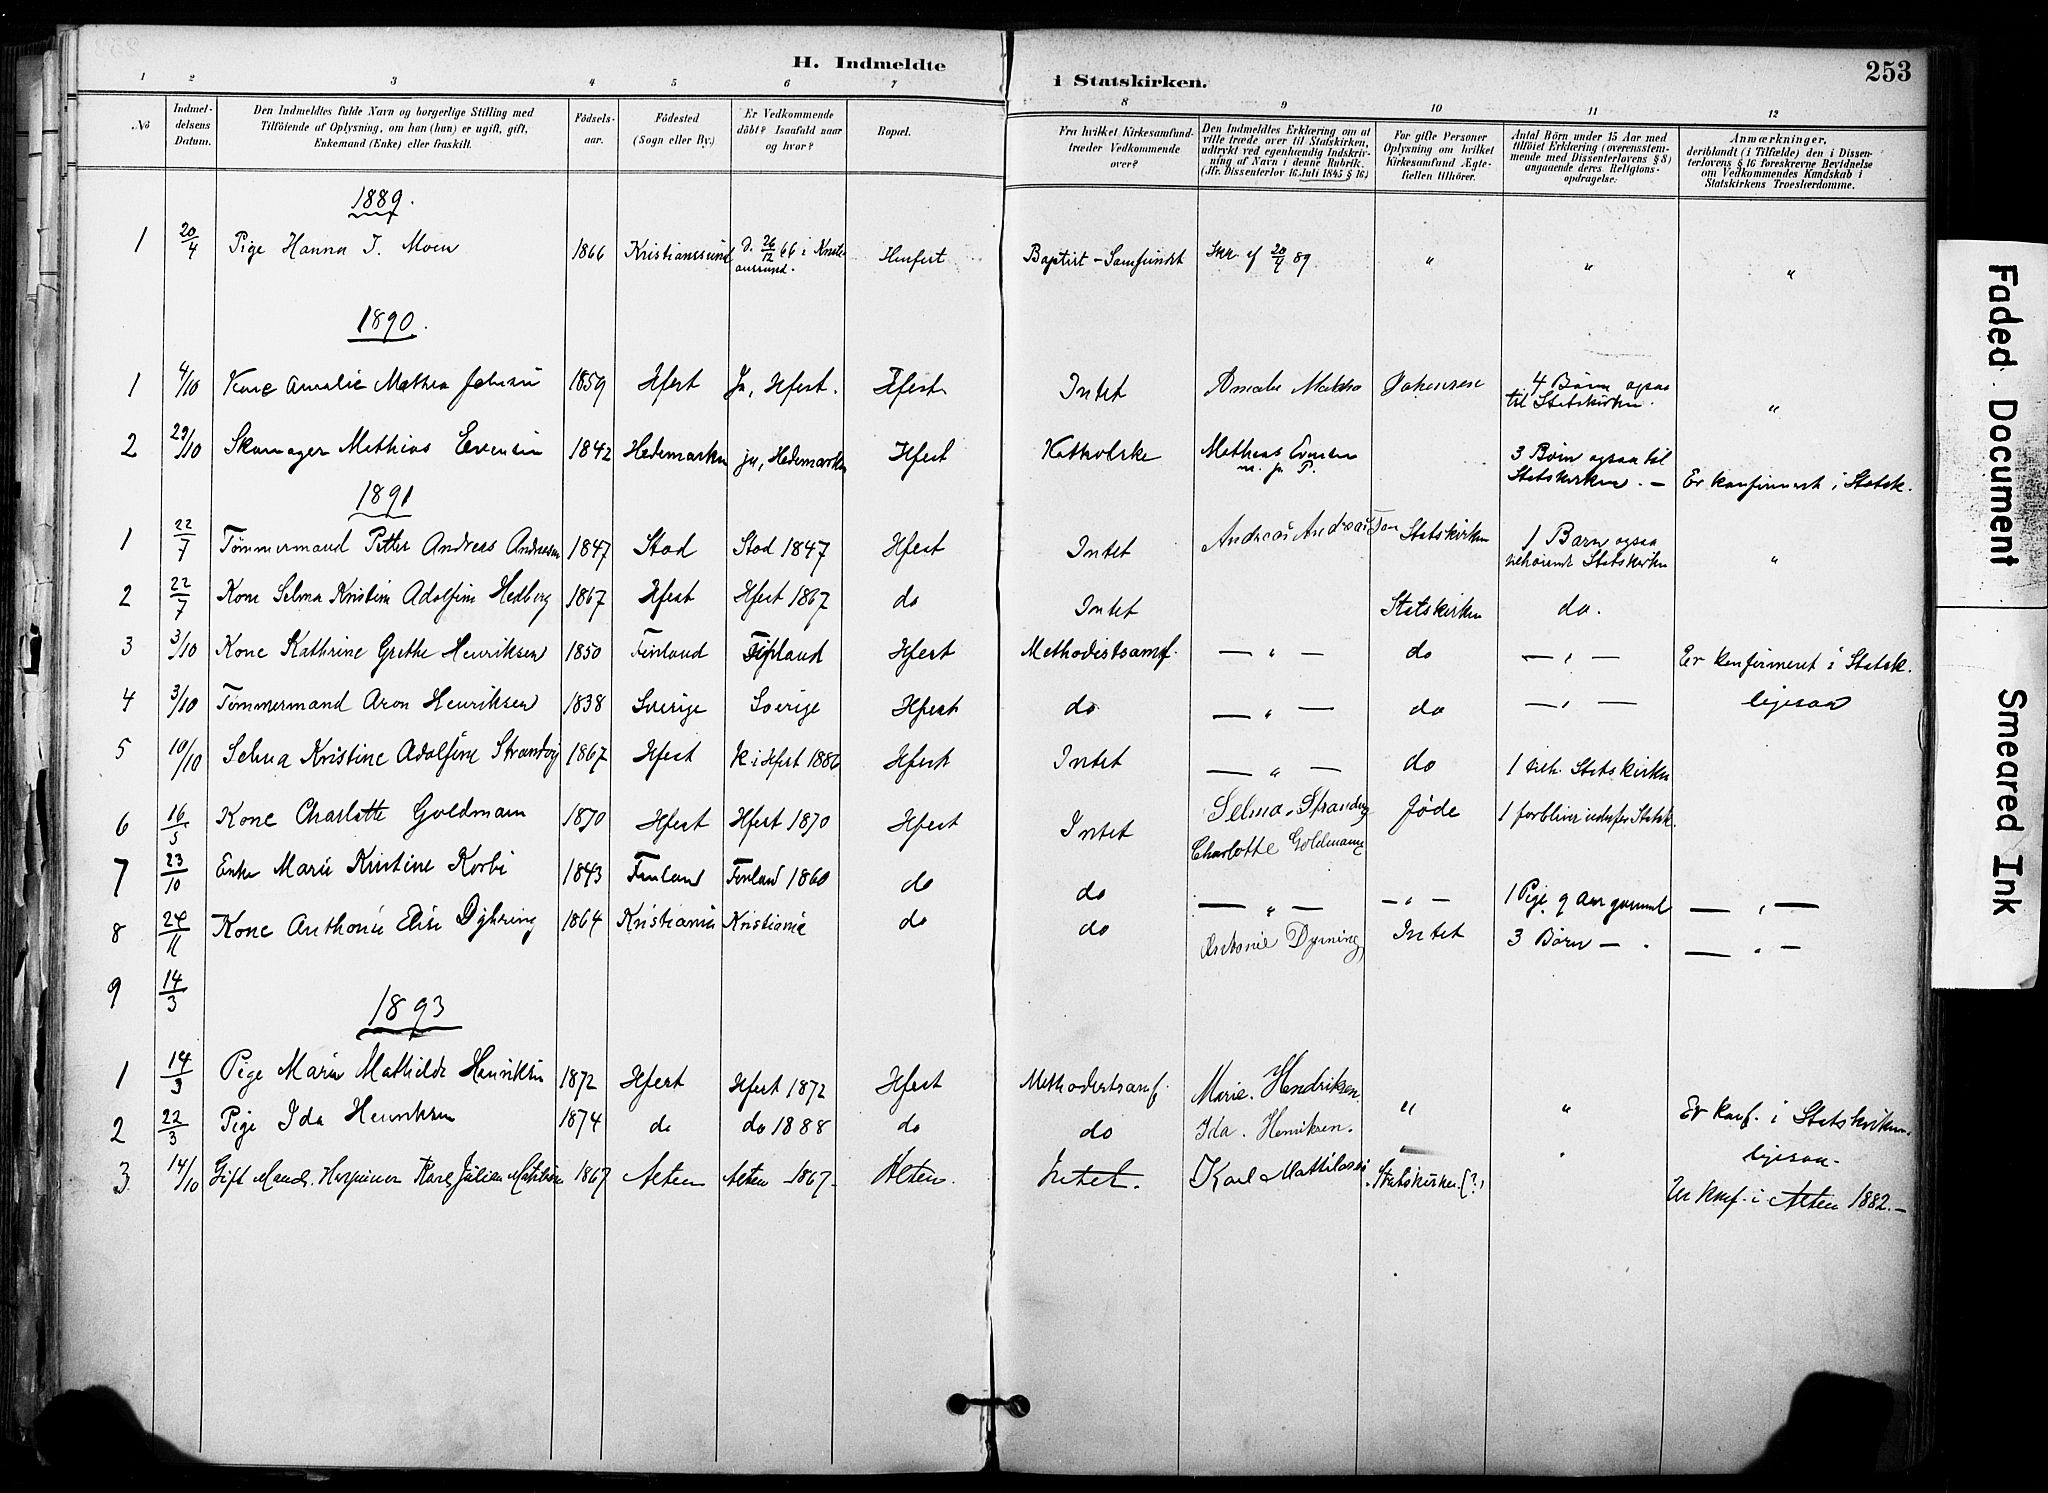 H. Indmeldte i Statskirken. 253
1 2 3 4 5 6 7 8 9 10 11 12
No
Indmeldelsens Datum.
Den Indmeldtes fulde Navn og borgerlige Stilling med
Tilföiende af Oplysning, om han (hun) er ugift, gift,
Enkemand (Enke) eller fraskilt.
Födselsaar.
Födested
(Sogn eller By.)
Er Vedkommende
döbt? Isaafald naar
og hvor?
Bopæl.
Fra hvilket Kirkesamfund
træder Vedkommende
over?
Den Indmeldtes Erklæring om at
ville træde over til Statskirken,
udtrykt ved egenhændig Indskrivning
af Navn i denne Rubrik.
(Jfr. Dissenterlov 16 Juli 1845 § 16)
For gifte Personer
Oplysning om hvilket
Kirkesamfund Ægtefællen
tilhörer.
Antal Börn under 15 Aar med
tilföiet Erklæring (overensstemmende
med Dissenterlovens § 8)
angaaende deres Religionsopdragelse.
Anmærkninger,
deriblandt (i Tilfælde) den i Dissenterlovens
§ 16 foreskrevne Bevidnelse
om Vedkommendes Kundskab i
Statskirkens Troeslærdomme.
1889.
1 20/4 Pige Hanna J. Moen 1866 Kristianssund D. 26/12 66 i Kristianssund. Hmfest Baptist-Samfundet Skr. af 20/4 89 " " "
1890.
1 4/10 Kone Amalie Mathea Johnsen 1859 Hfest Ja, Hfest. Hfest Intet Amalie Mathea Johansen 4 Børn ogsaa til Statskirken. "
2 29/10 Skomager Mathias Evensen 1842 Hedemarken ja, Hedemarken Hfest Katholske Mathias Evensen m. p. P. 3 Børn ogsaa til Statskirken. — Er konfirmert i Statsk.
1891
1 22/7 Tømmermand Petter Andreas Andreasen 1847 Stod Stod 1847 Hfest Intet Andreas Andreassen Statskirken 1 Barn ogsaa tilhørende Statskirken "
2 22/7 Kone Selma Kristine Adolfine Hedberg 1867 Hfest Hfest 1867 do Intet Statskirken do.
3 3/10 Kone Kathrine Grethe Henriksen 1850 Finland Finland Hfest Methodistsamf. — " — do — " — Er konfirmeret i Statsk.
4 3/10 Tømmermand Aron Henriksen 1838 Sverige Sverige Hfest do — " — do — " — ligesaa
5 10/10 Selma Kristine Adolfine Strandvg 1867 Hfest k i Hfest 1886 Hfest Intet — " — do 1 tilh. Statskirken
6 16/5 Kone Charlotte Goldmann 1870 Hfest Hfest 1870 Hfest Intet Selma Strandvg Jøde 1 forbliver udenfor Statsk.
Charlotte Goldmann
7 23/10 Enke Marie Kristine Korbi 1843 Finland Finland 1860 do do — " — — " — 1 Pige 9 Aar gammel — " —
8 24/11 Kone Anthonie Elise Dyhring 1864 Kristiania Kristiania do do Antonie Dyrning Intet 3 Børn — " — " —
9 14/3
1893
1 14/3 Pige Marie Mathilde Henriksen 1872 Hfest Hfest 1872 Hfest Methodistsamf. Marie. Hendriksen. " " Er konf. i Statskirken.
2 22/3 Pige Ida Henriksen 1874 do do 1888 do do Ida. Henriksen. — " ligesaa.
3 14/10 Gift Mand. Karl Julian Mathilas 1867 Alten Alten 1867 Alten. Intet. Karl Mattilassi Statskirken (?) Er konf. i Alten 1882. —
Faded Document
Smeared Ink